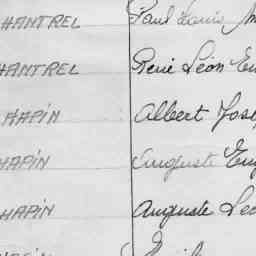 HANTREL Paul Louis M
HANTREL René Léon Eu
HAPIN Albert Jose
HAPIN Auguste Eug
HAPIN Auguste Leo